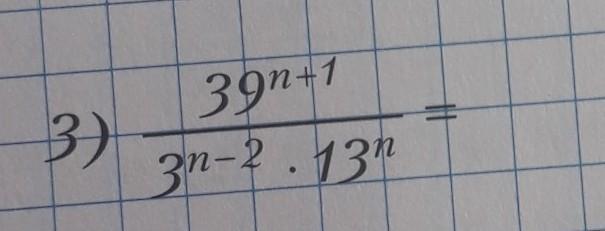 3) \frac{39^{n+1}}{3^{n-2} \cdot 13^{n}} =